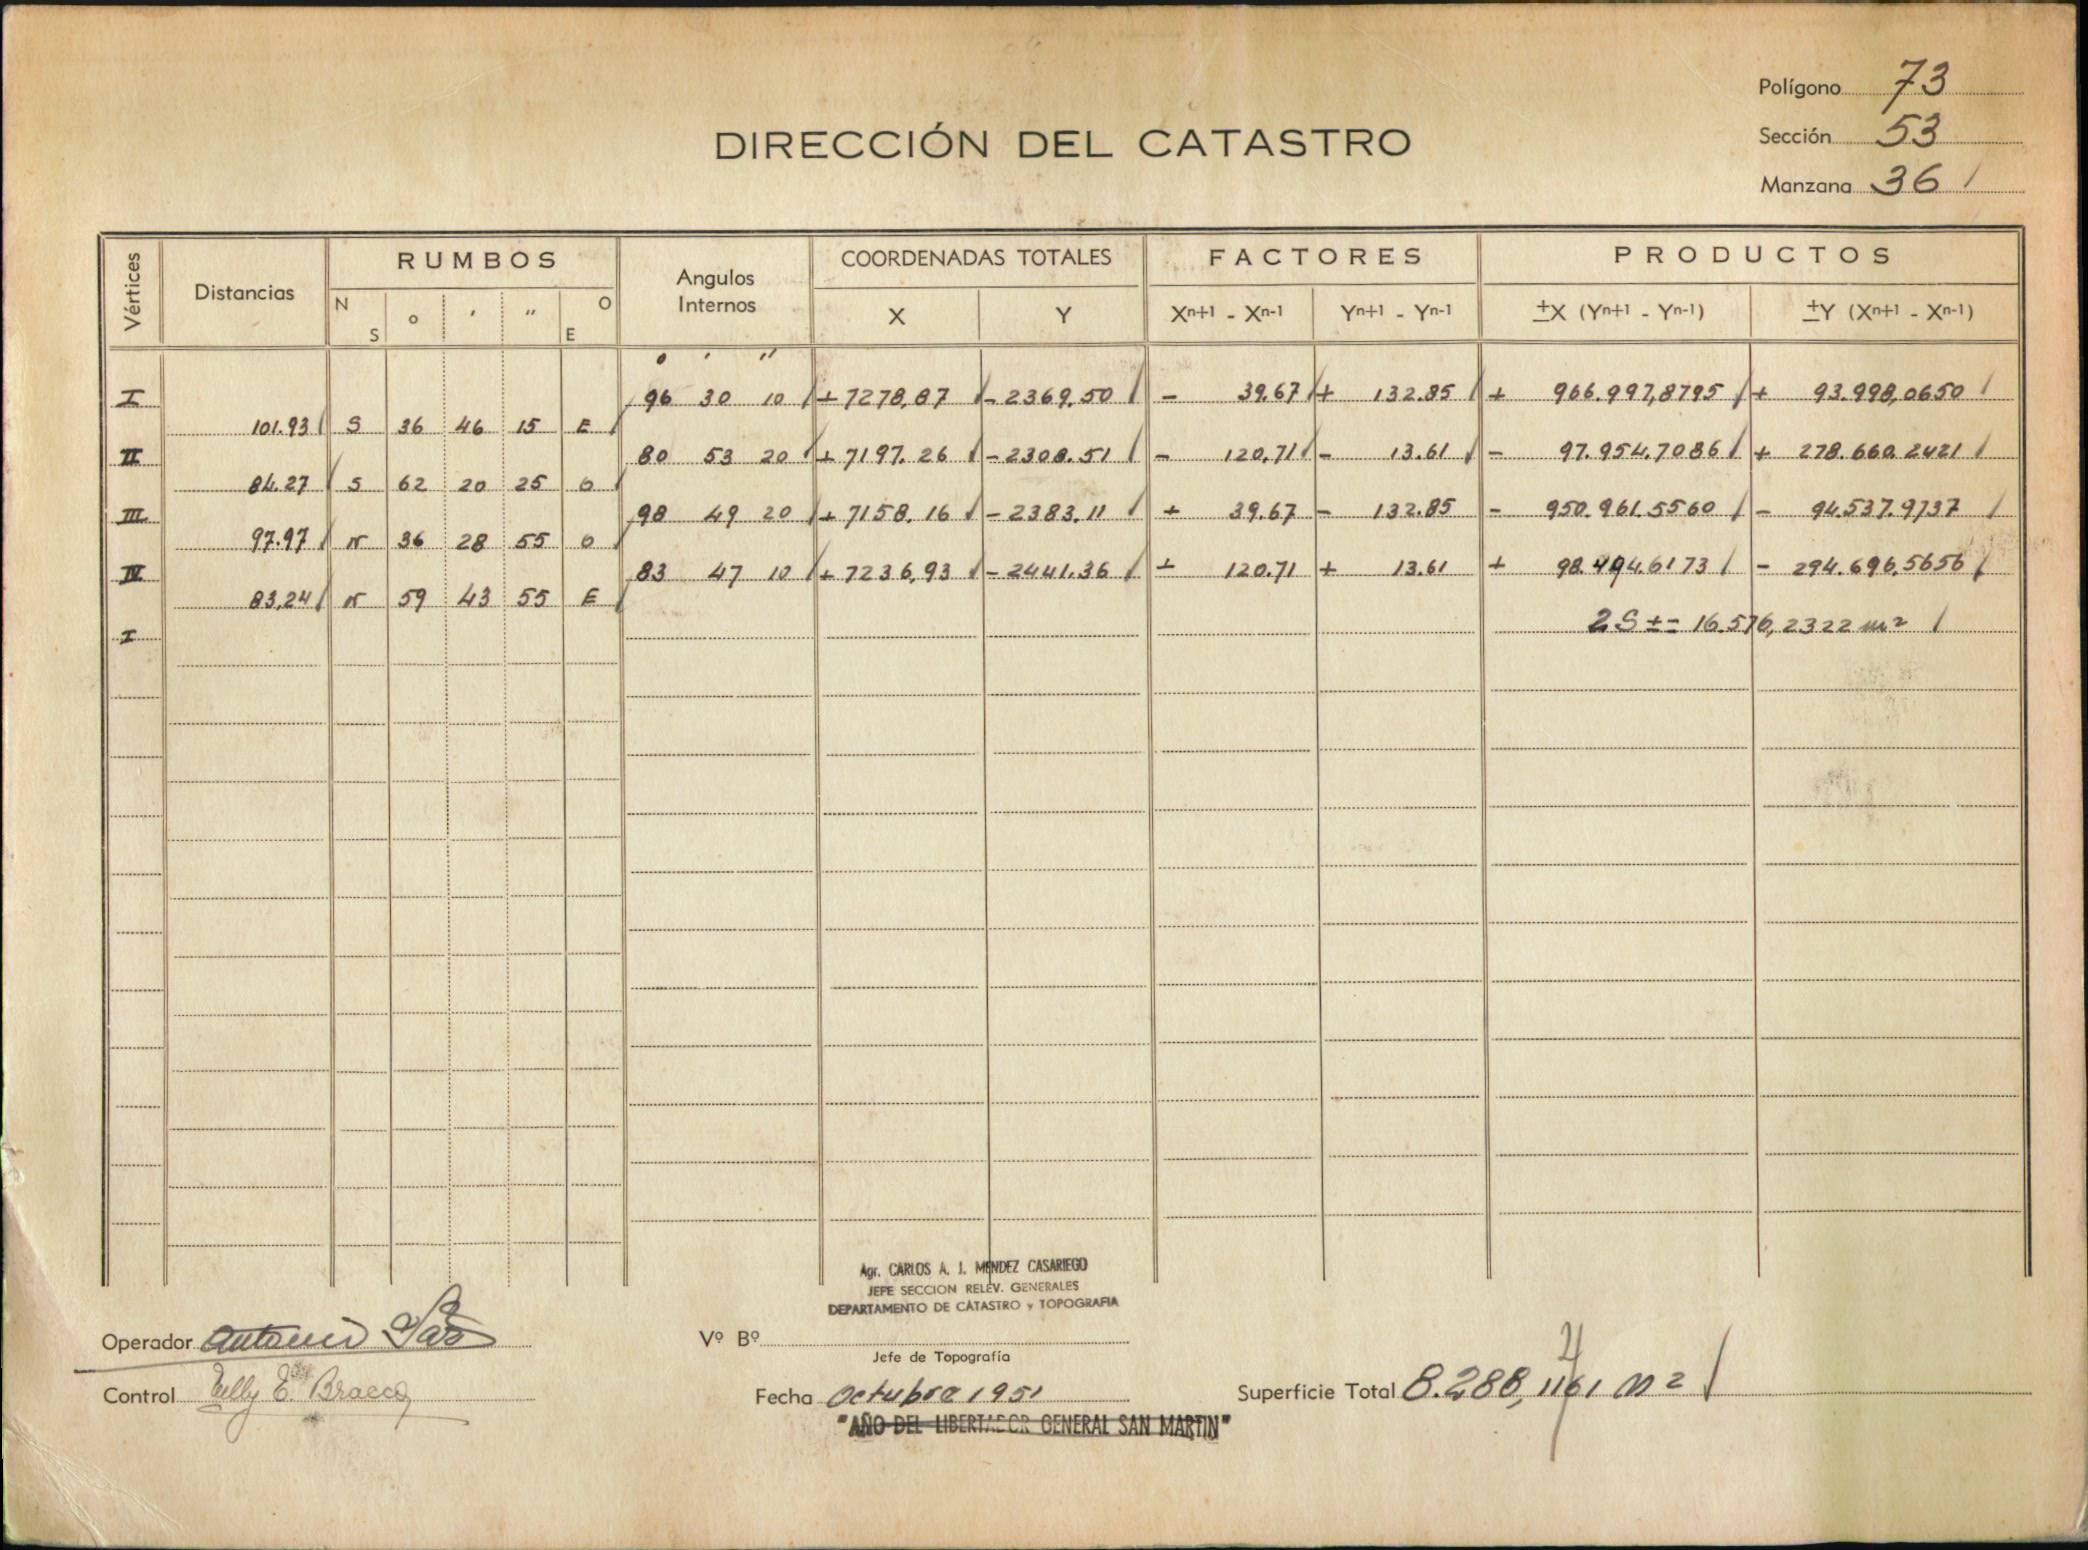 Polígono 73
DIRECCIÓN DEL CATASTRO
Sección 53
Manzana 36
Vértices Distancias RUMBOS Angulos Internos COORDENADAS TOTALES FACTORES PRODUCTOS
N S ° ' " O E X Y Xn+1 - Xn-1 Yn+1 - Yn-1 ±X (Yn+1 - Yn-1) ±Y (Xn+1 - Xn-1)
° ' "
I 96 30 10 +7278,87 -2369,50 - 39.67 + 132.85 + 966.997,8795 + 93.998,0650
101.93 S 36 46 15 E
II 80 53 20 +7197.26 -2308.51 - 120.71 - 13.61 - 97.954.7086 + 278.660.2421
84.27 S 62 20 25 O
III 98 49 20 +7158.16 -2383.11 + 39.67 - 132.85 - 950.961.5560 - 94.537.9737
97.97 N 36 28 55 O
IV 83 47 10 +7236,93 -2441.36 + 120.71 + 13.61 + 98.494.6173 - 294.696.5656
83,24 N 59 43 55 E
I 2S ± = 16.576,2322 m²
Agr. CARLOS A. J. MENDEZ CASARIEGO
JEFE SECCION RELEV. GENERALES
DEPARTAMENTO DE CATASTRO y TOPOGRAFIA
Operador Antonio
Vº Bº
Jefe de Topografía
Control Nelly E. Bracco
Fecha Octubre 1951
Superficie Total 8.288,1161 m²
"AÑO DEL LIBERTADOR GENERAL SAN MARTIN"